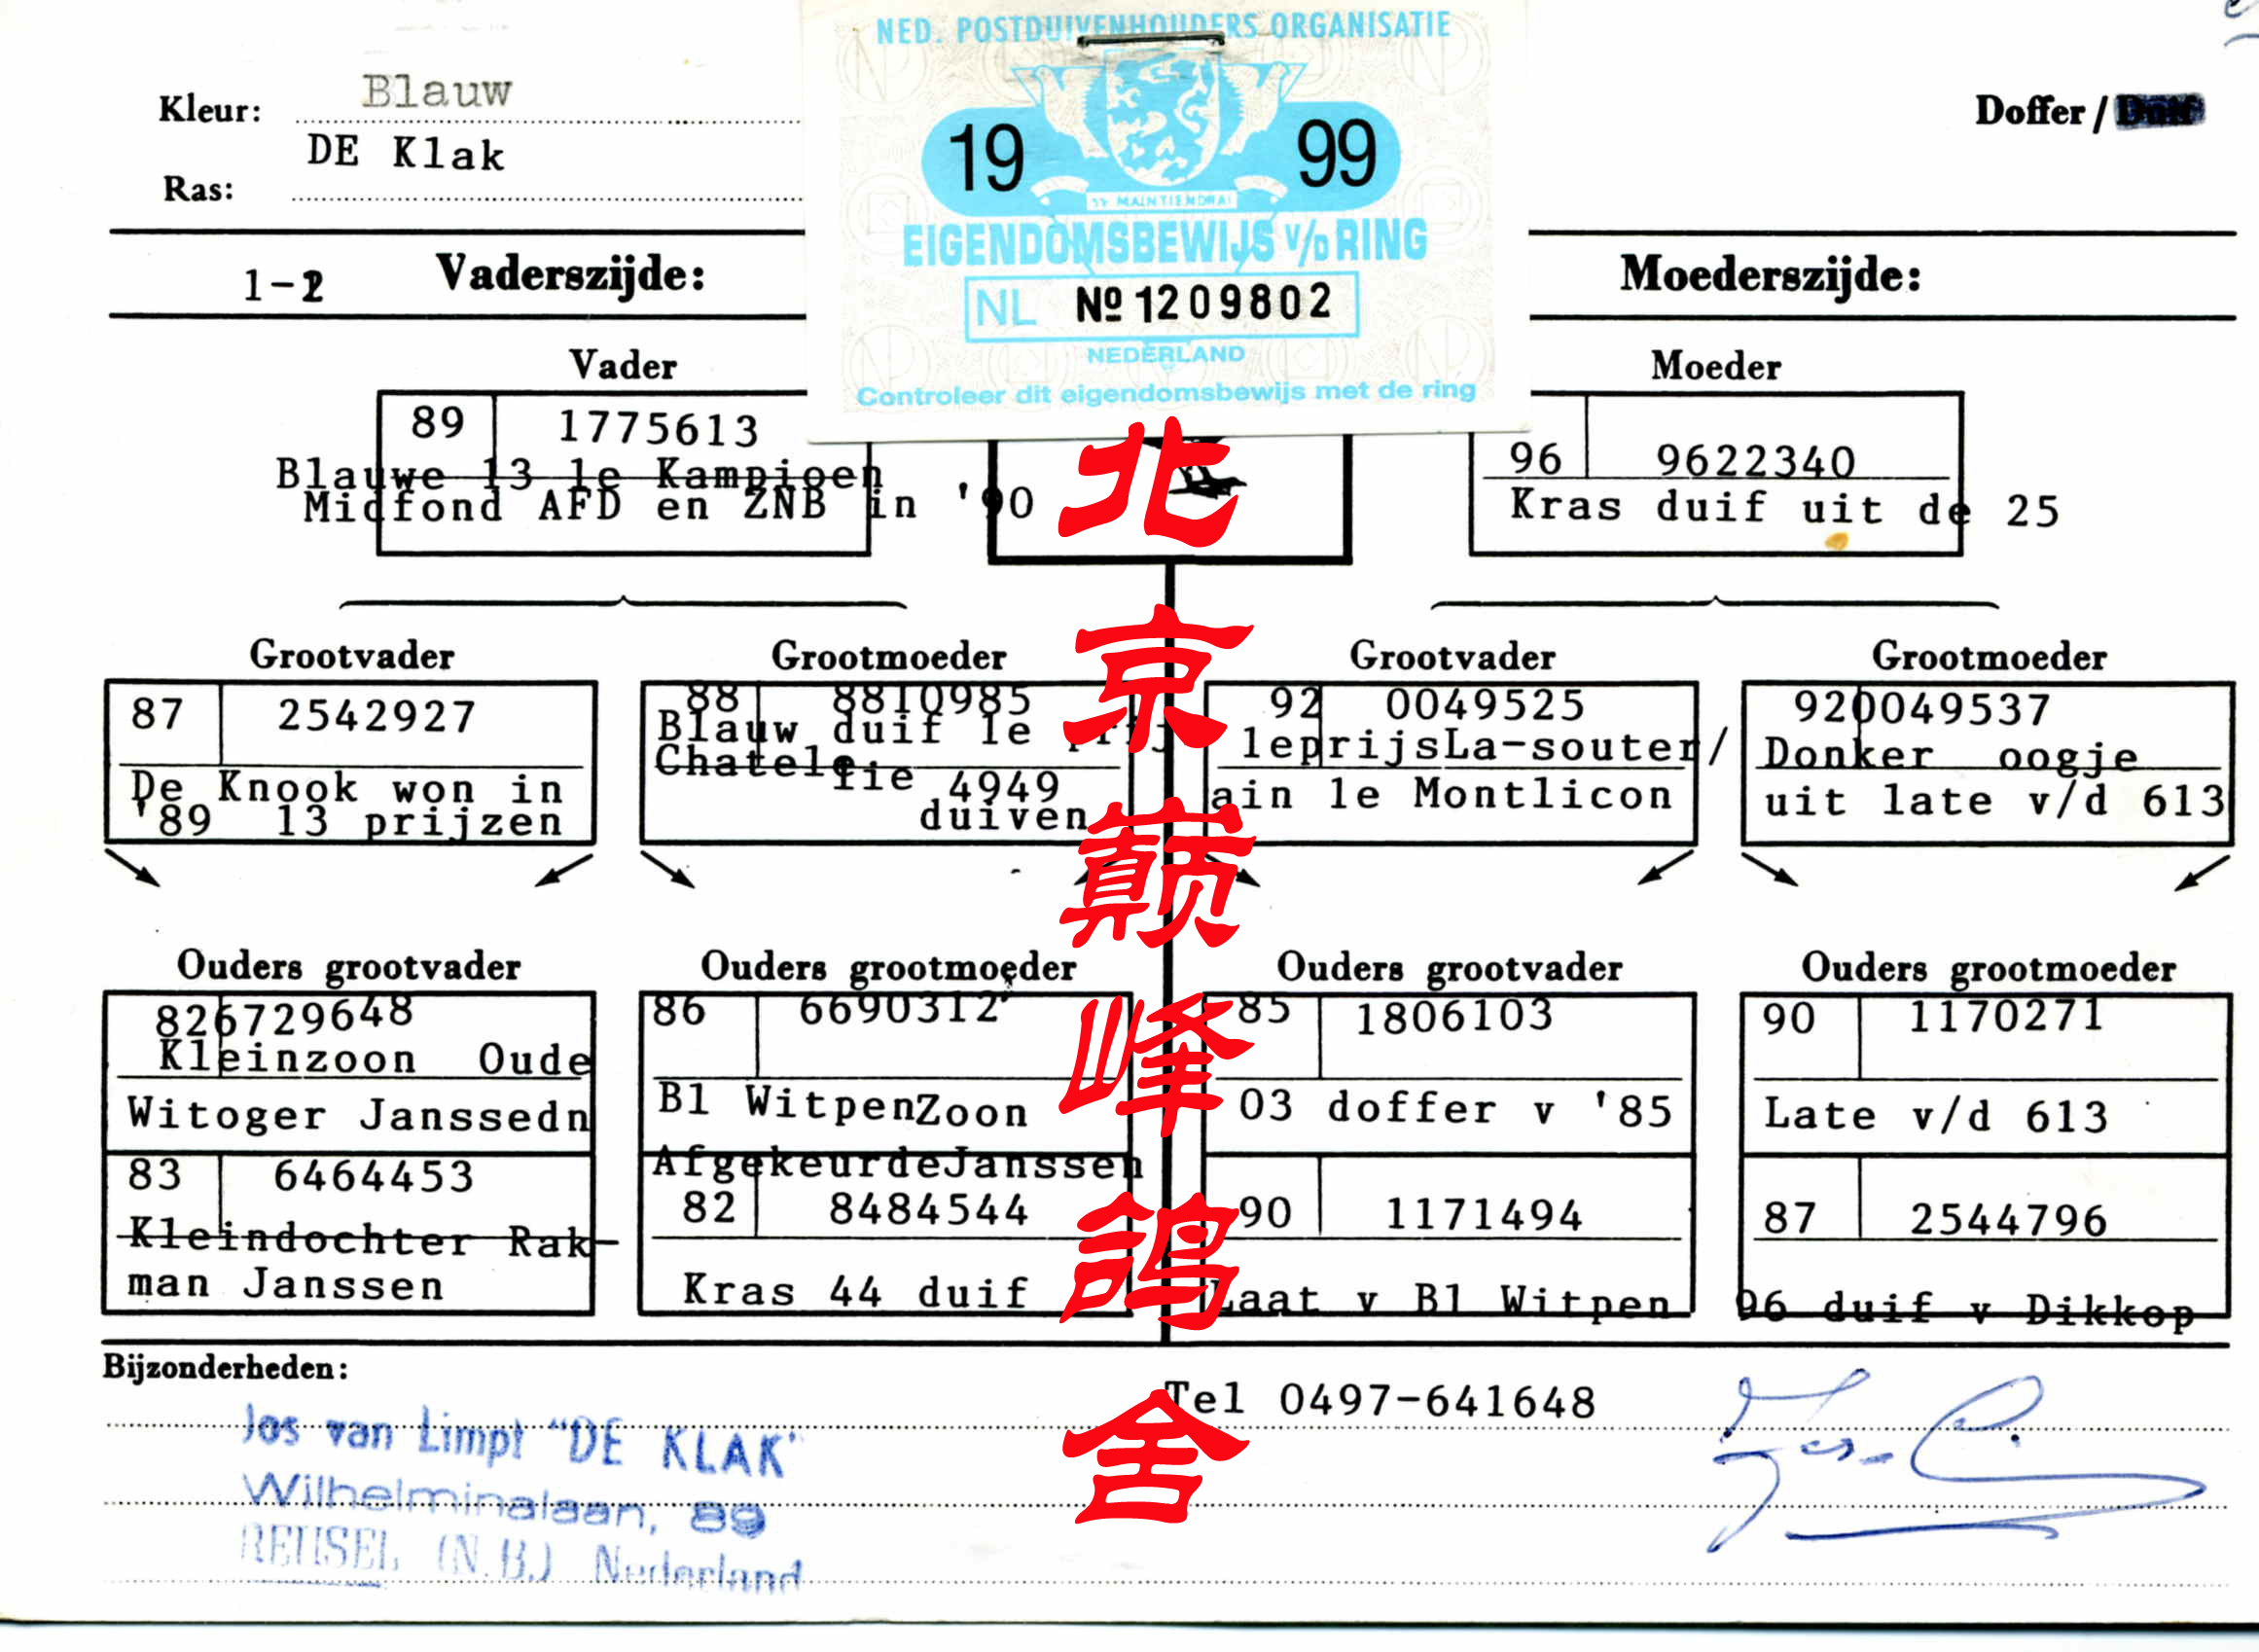 NED. POSTDUIVENHOUDERS ORGANISATIE
19 99
EIGENDOMSBEWIJS V/D RING
NL Nº 1209802
NEDERLAND
Controleer dit eigendomsbewijs met de ring
Kleur: Blauw
Ras: DE Klak
Doffer /
Vaderszijde:
Moederszijde:
Vader
89 1775613
Blauwe 13 1e Kampioen
Midfond AFD en ZNB in '90
Moeder
96 9622340
Kras duif uit de 25
Grootvader
87 2542927
De Knook won in
'89 13 prijzen
Grootmoeder
88 8810985
Blauw duif 1e prij
Chatel
fie 4949
duiven
Grootvader
92 0049525
1eprijsLa-souter/
ain 1e Montlicon
Grootmoeder
920049537
Donker oogje
uit late v/d 613
Ouders grootvader
826729648
Kleinzoon Oude
Witoger Janssedn
83 6464453
Kleindochter Rak-
man Janssen
Ouders grootmoeder
86 6690312
Bl WitpenZoon
AfgekeurdeJanssen
82 8484544
Kras 44 duif
Ouders grootvader
85 1806103
03 doffer v '85
90 1171494
Laat v Bl Witpen
Ouders grootmoeder
90 1170271
Late v/d 613
87 2544796
96 duif v Dikkop
Bijzonderheden:
Tel 0497-641648
Jos van Limpt "DE KLAK"
Wilhelminalaan, 89
REUSEL (N.B.) Nederland
北京巅峰鸽舍